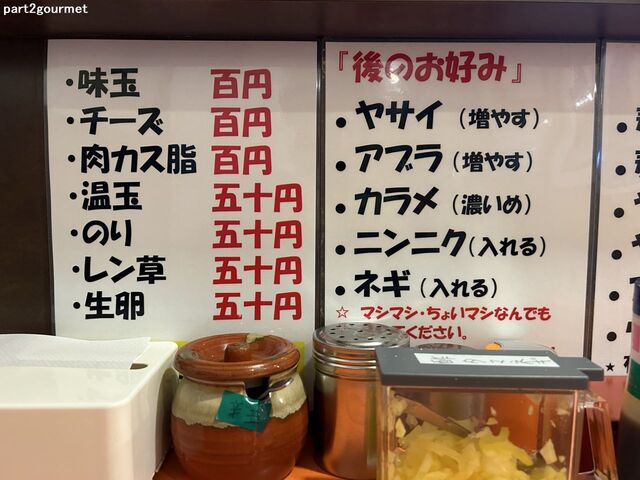 part2gourmet
・味玉 百円
・チーズ 百円
・肉カス脂 百円
・温玉 五十円
・のり 五十円
・レン草 五十円
・生卵 五十円
『後のお好み』
・ヤサイ（増やす）
・アブラ（増やす）
・カラメ（濃いめ）
・ニンニク（入れる）
・ネギ（入れる）
☆ マシマシ・ちょいマシなんでも
てください。